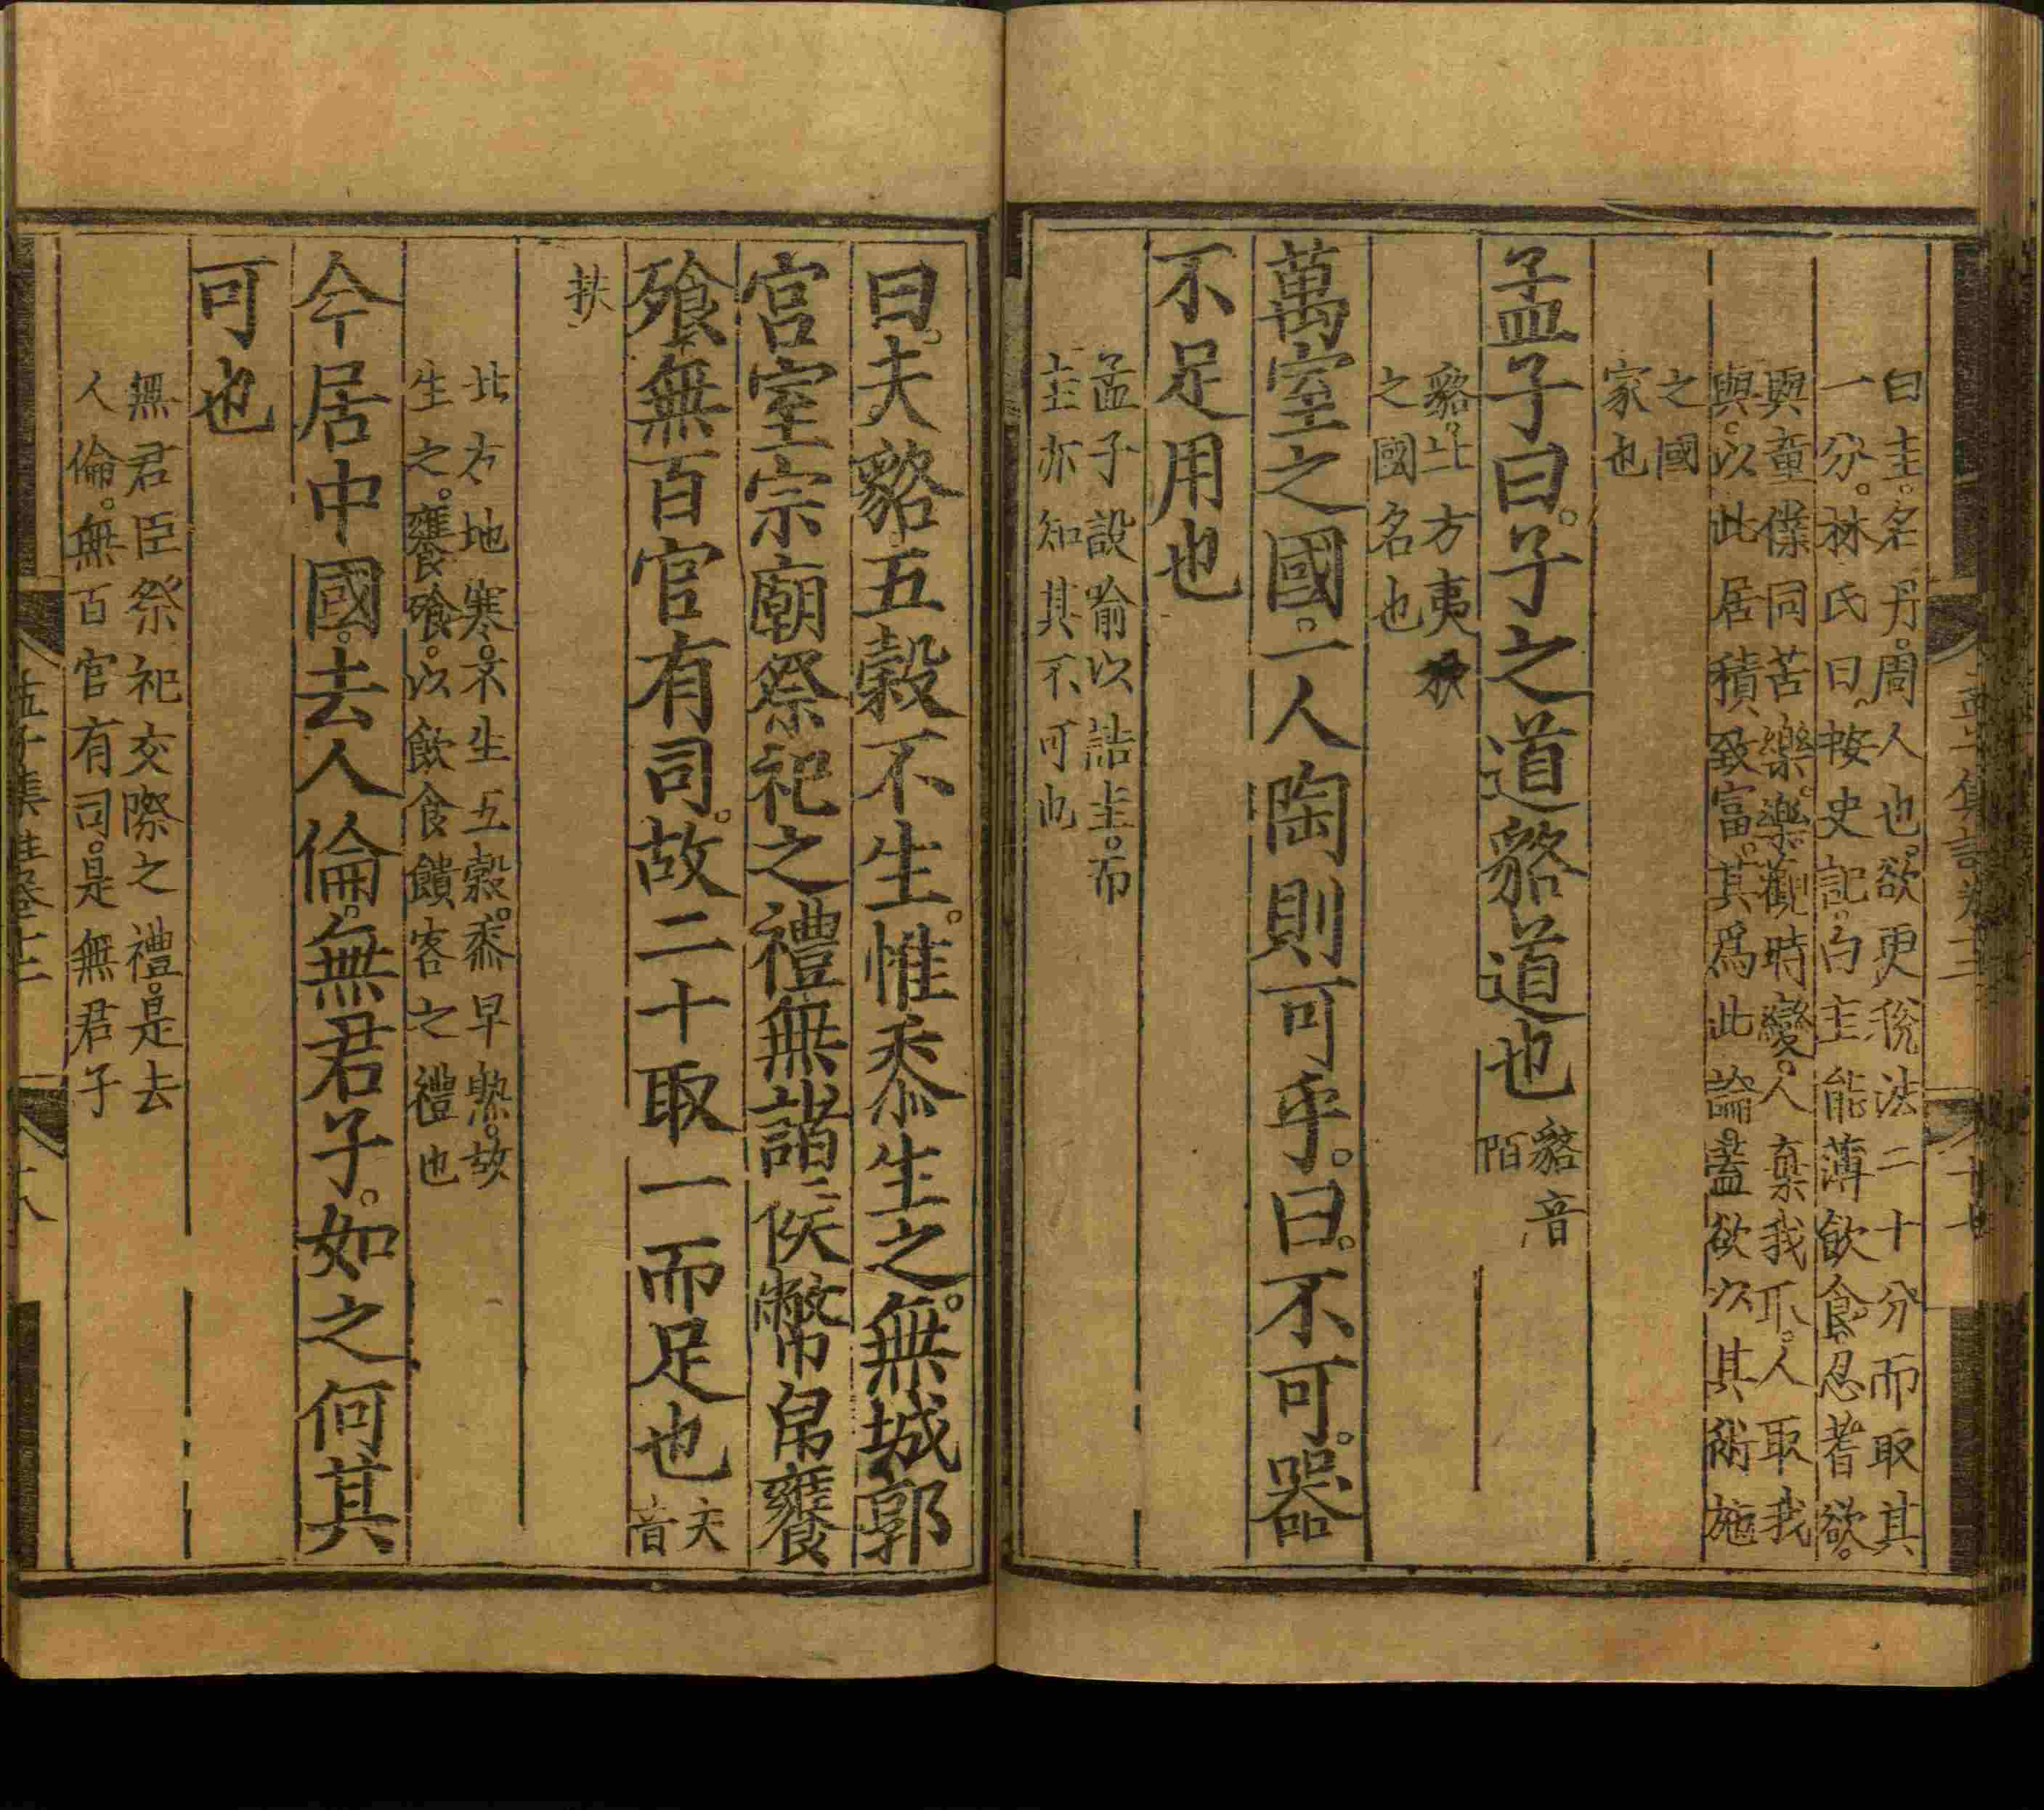 曰圭。名丹。周人也。欲更稅法二十分而取其
一分。林氏曰。按史記。白圭能薄飲食。忍耆欲。
與童僕同苦樂。樂觀時變。人棄我取。人取我
與。以此居積致富。其爲此論。蓋欲以其術施
之國
家也
孟子曰。子之道貉道也貉音
陌
貉。北方夷狄
之國名也
萬室之國。一人陶則可乎。曰。不可。器
不足用也
孟子設喻以詰圭。而
圭亦知其不可也
曰。夫貉五穀不生。惟黍生之。無城郭
宮室宗廟祭祀之禮無諸侯幣帛饔
飧無百官有司。故二十取一而足也夫
音
扶
北方地寒。不生五穀。黍早熟。故
生之。饔飧。以飲食饋客之禮也
今居中國。去人倫。無君子。如之何其
可也
無君臣祭祀交際之禮。是去
人倫。無百官有司。是無君子
孟子集註卷十二
十八